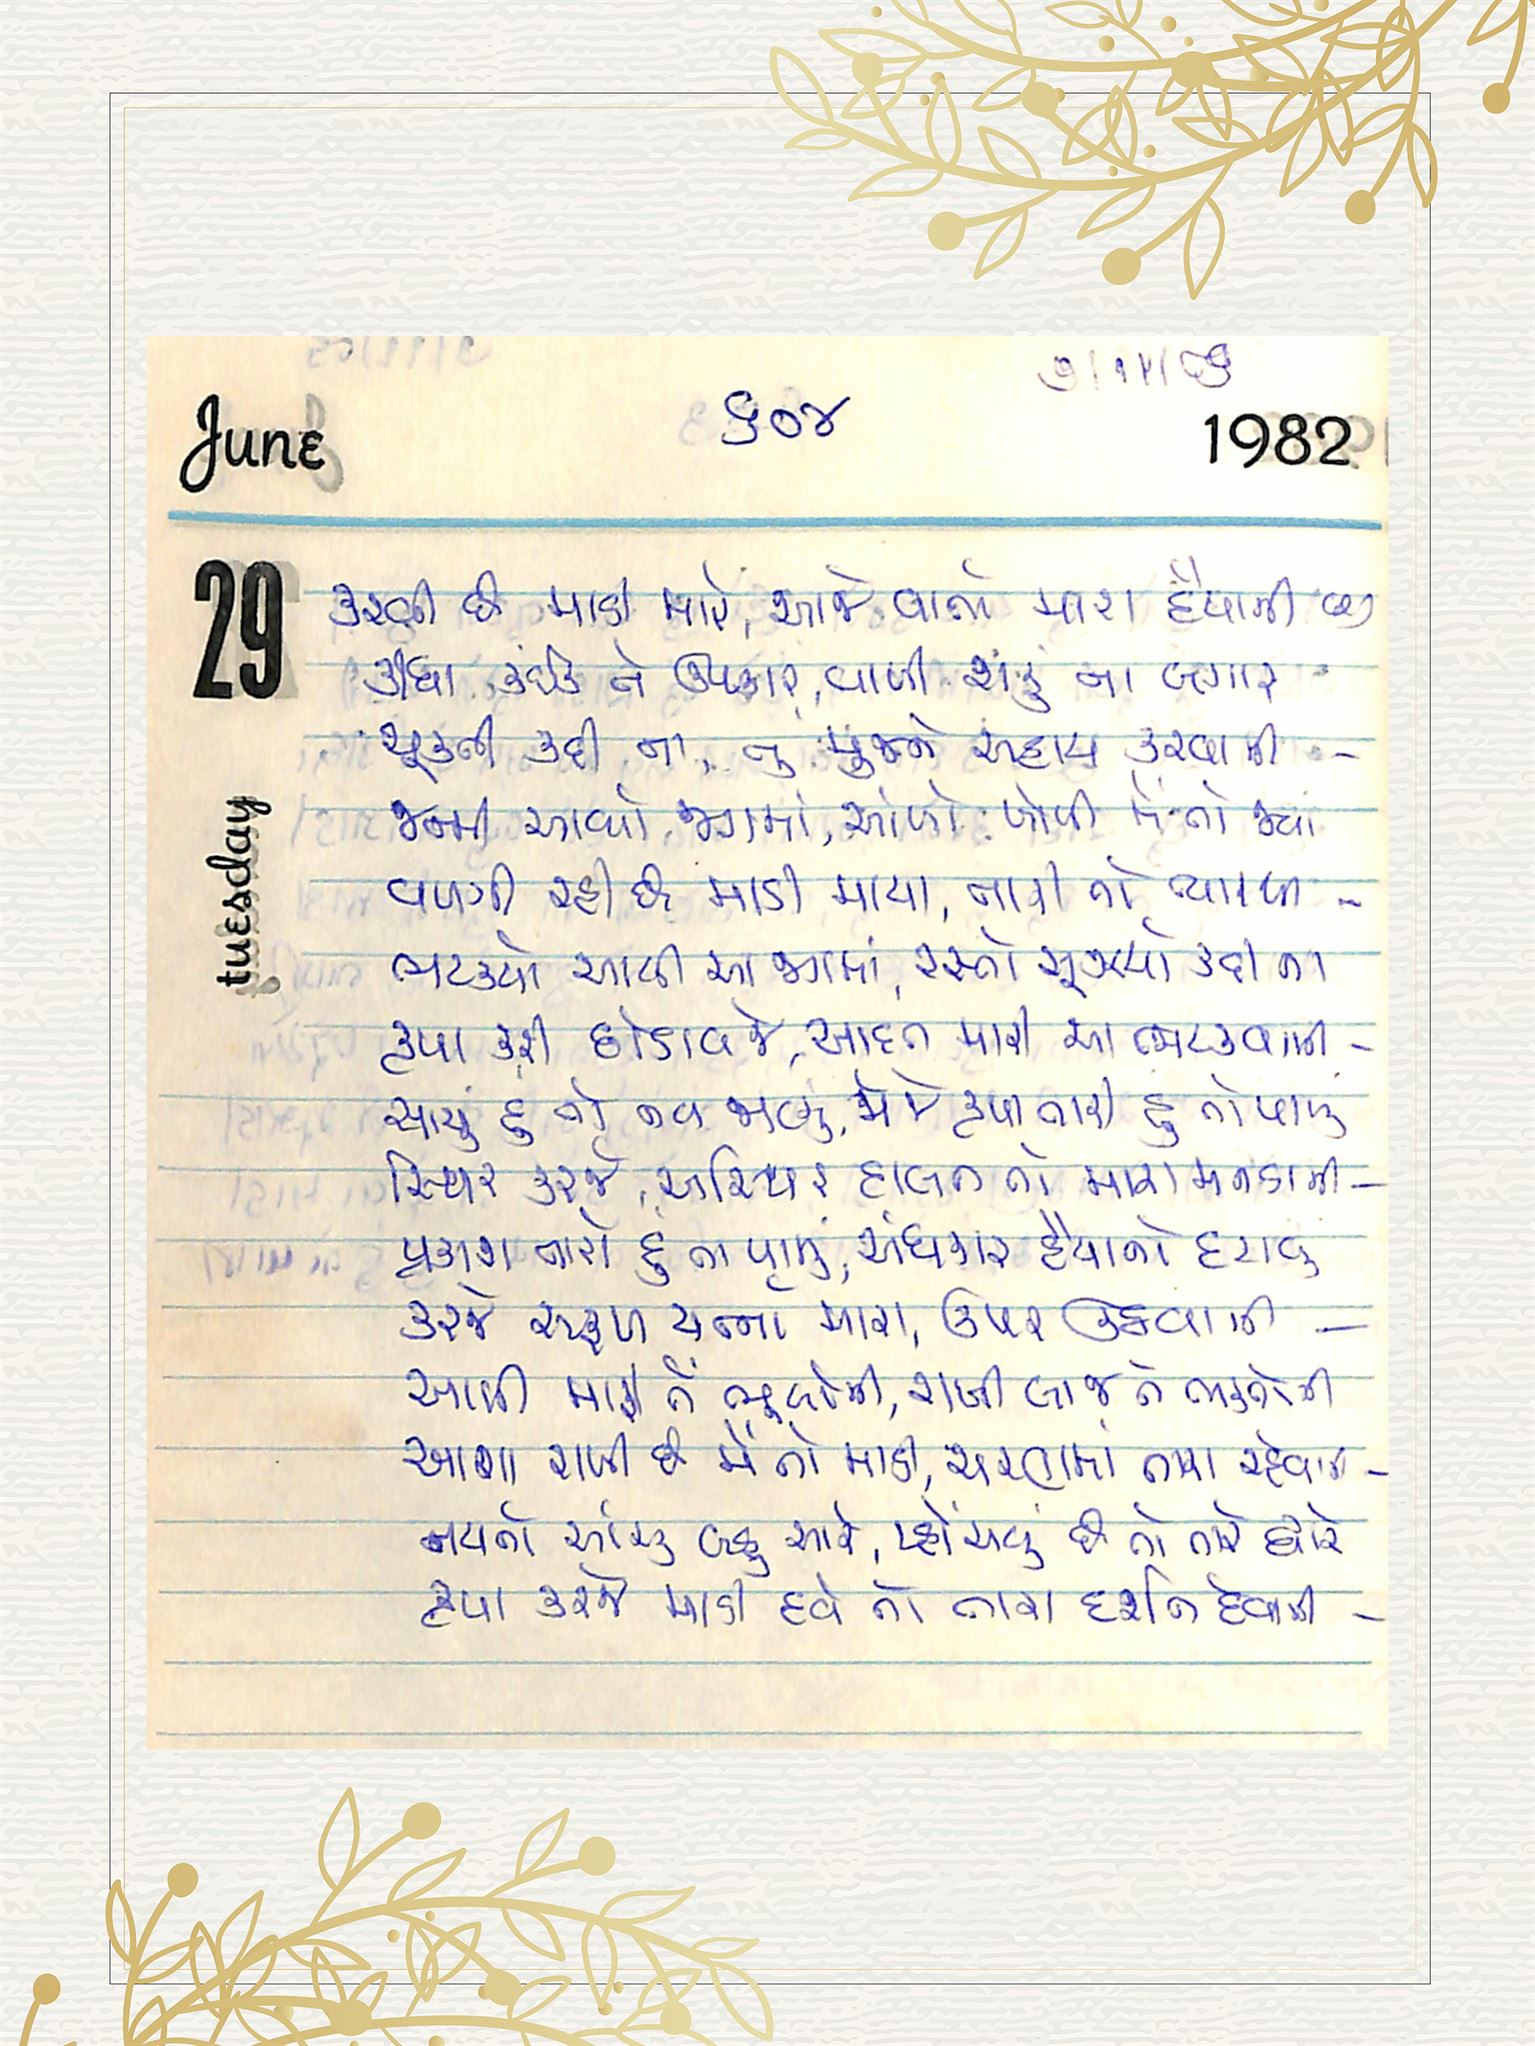 ૭/૧૧/૮૬
June ૬૦૪ 1982
29
tuesday
કરવી છે માડી મારે, આજે વાતો મારા હૈયાની (૨)
કીધા કંઈક ને ઉપકાર, વાળી શકું ના લગાર
ચૂકતી કદી ના, તુ મુજને સહાય કરવાની -
જન્મી આવ્યો જગમાં, આંખો ખોલી મેં તો જ્યાં
વળગી રહી છે માડી માયા, તારી તો ત્યારથી -
ભટક્યો આવી આ જગમાં, રસ્તો સૂઝ્યો કદી ના
કૃપા કરી છોડાવજે, આદત મારી આ ભટકવાની -
સાચું હું તો નવ જાણું, જો કૃપા તારી હું તો પામુ
સ્થિર કરજે, અસ્થિર હાલત તો મારા મનડાની -
પ્રકાશ તારો હું તો પામું, અંધકાર હૈયાનો હટાવુ
કરજે સફળ યત્નો મારા, ઉપર ઉઠવાની -
આવી માડી તેં ભૂલોની, રાખી લાજ તે ભક્તોની
આશા રાખી છે મેં તો માડી, ચરણમાં તારા રહેવાની -
નયનો આંસુ બહુ સારે, પ્હોંચવું છે તો તારે દ્વારે
કૃપા કરજે માડી હવે તો તારા દર્શન દેવાની -